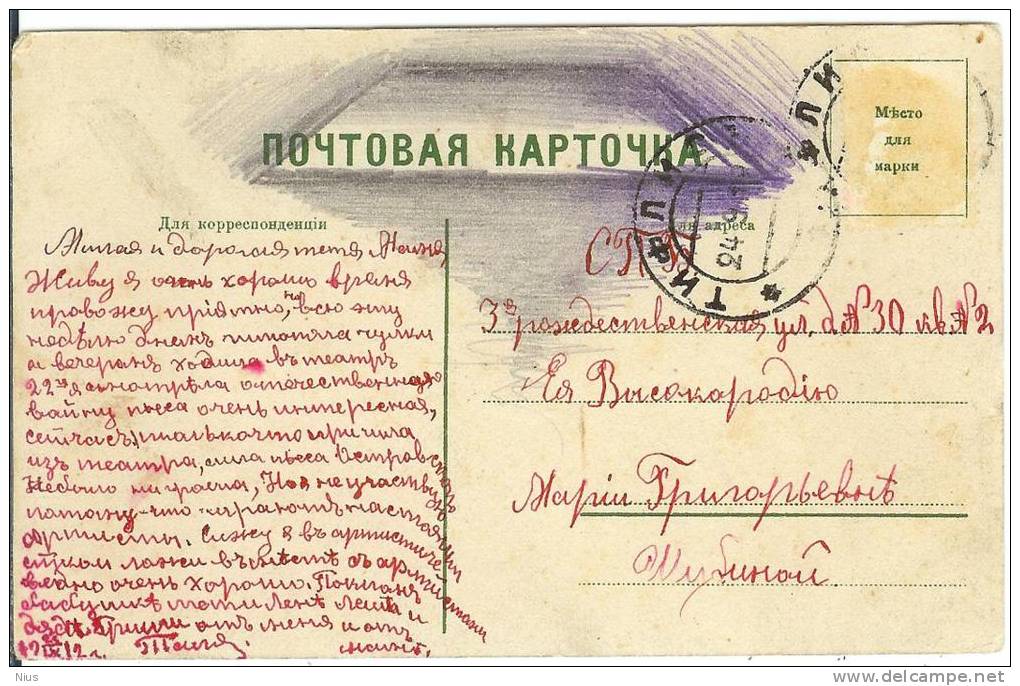 ПОЧТОВАЯ КАРТОЧКА
Мѣсто
для
марки
ТИФЛИ
24
Для корреспонденціи
ля адреса
Милая и дорогая тетя Маня
Живу я очень хорошо время
провожу пріятно, всю эту
недѣлю днемъ чулки
а вечерамъ ходила въ театръ
22го смотрѣла отечественную
вайну пьеса очень интересная,
сейчасъ толькочто пришла
изъ театра, пьеса Островскаго
Небыло ни гроша, Но я не участвую
патаму-что играютъ настаящи
артисты. Сижу я въ артистиче
скай ложи въ мѣстѣ съ артистами
очень хорошо.
бабушкѣ тети Ленѣ и
дядѣ Гриши отъ меня и отъ
19 IX 12 г. Таня. мамы.
СПБ
3я рождественская ул. д № 30 кв. № 2
Ея Высокародію
Маріи Григорьевнѣ
Шубиной
Nius
delcampe.net